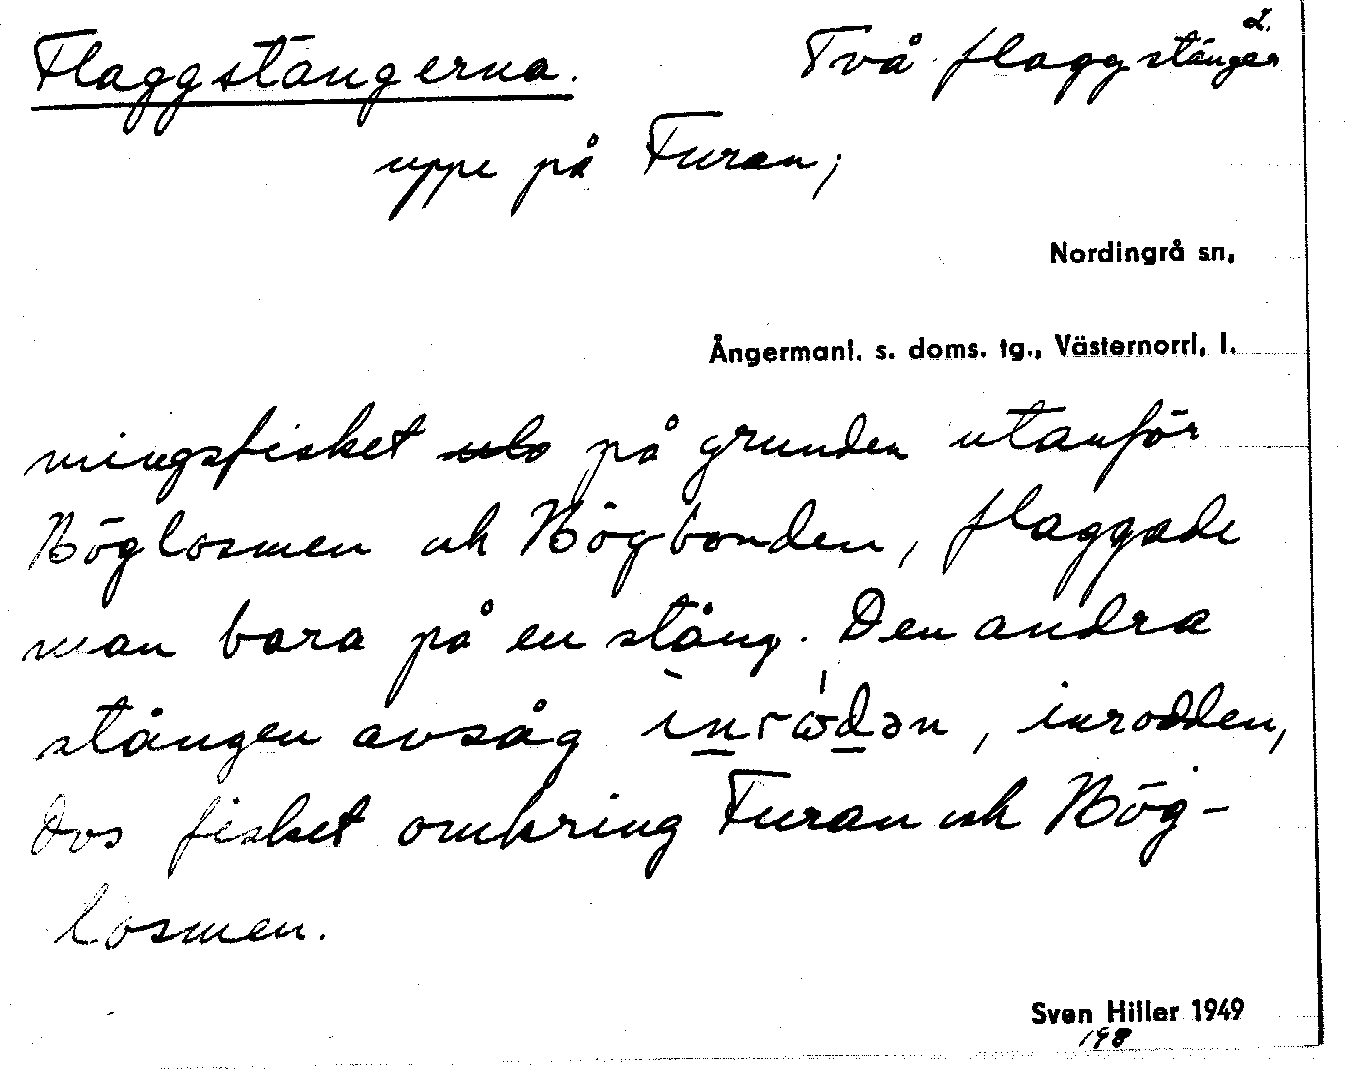 2.
Flaggstängerna. Två flaggstänger
uppe på Furan;
Nordingrå sn,
Ångermanl. s. doms. tg., Västernorrl. l.
ningsfisket på grunden utanför
Höglosmen och Högbonden, flaggade
man bara på en stång. Den andra
stången avsåg inrodden,
dvs fisket omkring Furan och Hög-
losmen.
Sven Hiller 1949
198